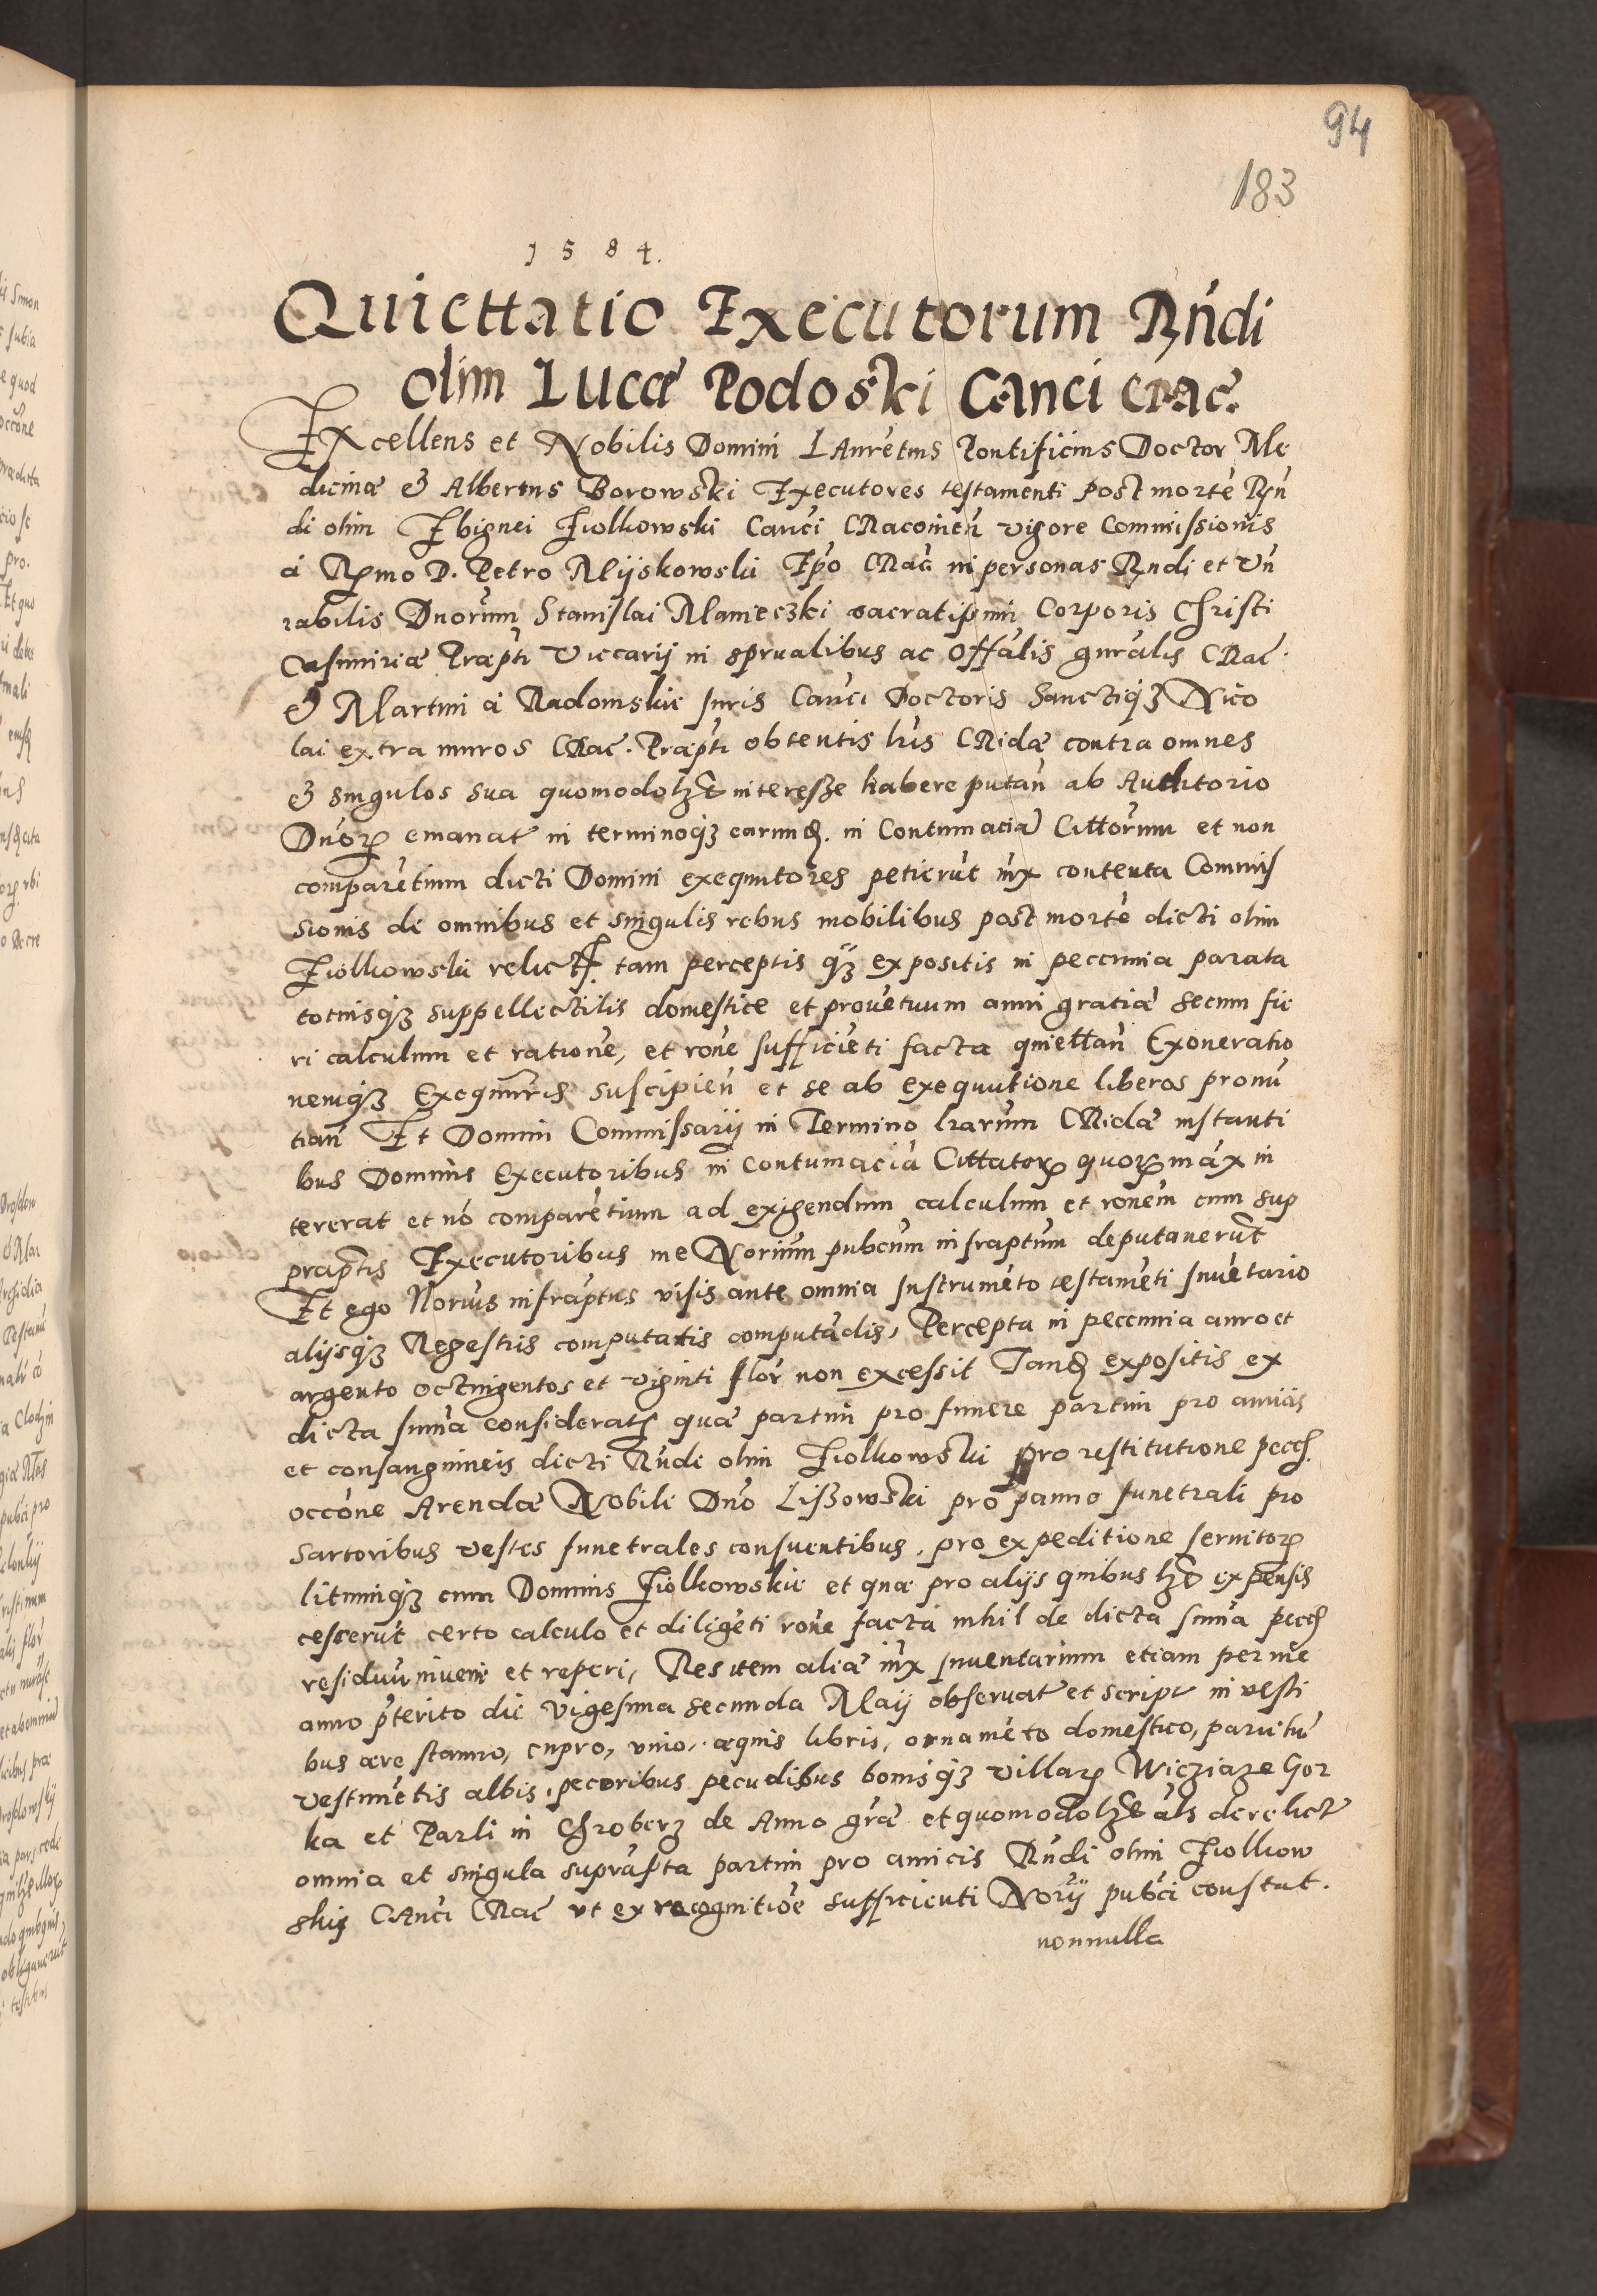 94
183
1584.
Quiettatio Executorum Rndi
olim Lucæ Podoski Canci Crac.
Excellens et Nobilis Domini Laurētius Pontificius Doctor Me
dicinæ & Albertus Borowski Executores testamenti post mortē Rn
di olim Zbignei Ziolkowski Canci Cracouień vigore Commissionis
à Rmo D. Petro Myskowski Epo Crac in personas Rndi et Vn
rabilis Dnorum Stanislai Manieczki sacratissimi Corporis Christi
Casimiriæ Præpti Viccarij in sprualibus ac Offālis gnralis Crac.
& Martini à Radomskie Juris Canci Doctoris Sanctiqȝ Nico
lai extra muros Crac. Præpti obtentis lris Cridæ contra omnes
& singulos sua quomodolȝt interesse habere putań ab Auditorio
Dnorꝝ emanat in terminoqȝ earund. in Contumaciā Cittorum et non
comparētium dicti Domini exequutores petierūt iux contenta Commis
sionis de omnibus et singulis rebus mobilibus post mortē dicti olim
Ziolkowski relict tam perceptis qȝ expositis in peccunia parata
totiusqȝ suppellectilis domestice et prouētuum anni gratiæ secum fie
ri calculum et rationē, et rone sufficiēti facta quiettań Exoneratio
nemqȝ Exequutris suscipień et se ab exequutione liberos pronū
tiań Et Domini Commissarij in Termino lrarum Cridæ instanti
bus Dominis Executoribus in contumaciā Cittatorꝝ quorꝝ máx in
tererat et nō comparētium ad exigendum calculum et ronem cum sup
praptis Executoribus me Norium pubcum infraptum deputauerūt
Et ego Norius infraptus visis ante omnia Instrumēto testamēti Inuētario
alijsqȝ Regestris computatis computādis, Percepta in peccunia auro et
argento octuigentos et viginti flor non excessit Tand expositis ex
dicta suma considerat quæ partim pro funere partim pro amicis
et consanguineis dicti Rndi olim Ziolkowski pro restitutione pecc.
occōne Arendæ Nobili Dno Lissowski pro panno funetrali pro
Sartoribus vestes funetrales consuentibus, pro expeditione seruitorꝝ
litumqȝ cum Dominis Ziolkowskie et quæ pro alijs quibus lȝt expensis
cesserūt certo calculo et diligēti rone facta nihil de dicta suma pecc
residuū inueni et reperi, Res item aliæ iux Inuentarium etiam per me
anno pterito die vigesima secunda Maij obseruat et script in vesti
bus ære stanno, cupro, vino, æquis libris, ornamēto domestico, paruitū
vestimētis albis, pecoribus pecudibus bonisqȝ villarꝝ Wicziąze Gor
ka et Parli in Chroberz de Anno græ et quomodolȝt als derelict
omnia et singula suprasta partim pro amicis Rndi olim Ziolkow
skij Canci Crac vt ex recognitiōe sufficienti Norij pubci constat.
nonnulla